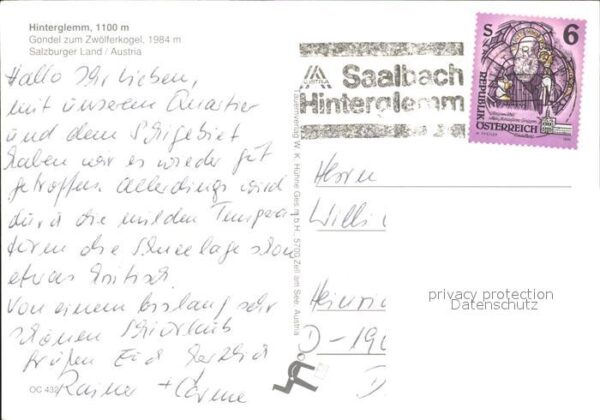 Hinterglemm, 1100 m
Gondel zum Zwölferkogel, 1984 m
Salzburger Land / Austria
Hallo Ihr Lieben,
mit unserem Quartier
und dem Skigebiet
haben wir es wieder gut
getroffen. Allerdings wird
durch die milden Tempera-
turen die Schneelage schon
etwas kritisch.
Von einem bislang sehr
schönen Skiurlaub
grüßen Euch herzlich
Rainer +
OC 432
W. K. Hühne Ges.m.b.H., 5700 Zell am See, Austria
AUSTRIA
Saalbach
Hinterglemm
S 6
REPUBLIK
ÖSTERREICH
Herrn
Willi
Heinri
D-19
D
privacy protection
Datenschutz